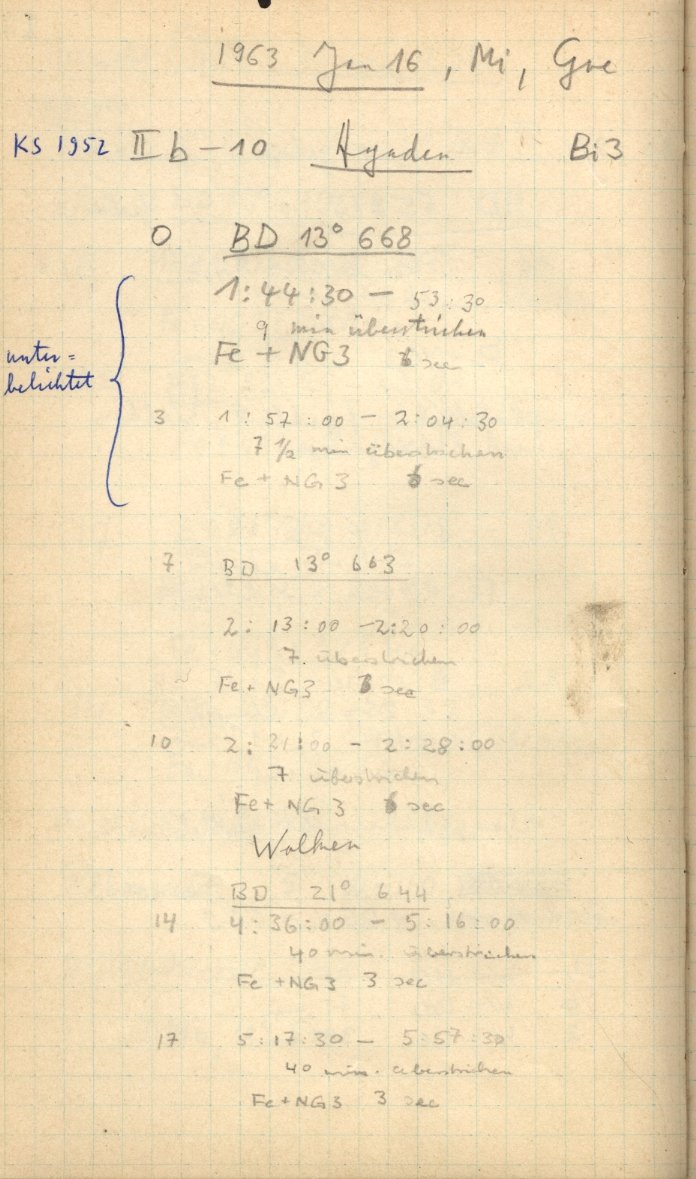 1963 Jan 16, Mi, Gre
KS 1952 II b - 10 Hyaden Bi3
0 BD 13° 668
1:44:30 - 53:30
9 min überstrichen
Fe + NG3 6 sec
unter=
belichtet
3 1:57:00 - 2:04:30
7 1/2 min überstrichen
Fe + NG3 6 sec
7 BD 13° 663
2:13:00 - 2:20:00
7 überstrichen
Fe + NG3 sec
10 2:21:00 - 2:28:00
7 überstrichen
Fe + NG3 6 sec
Wolken
BD 21° 644
14 4:36:00 - 5:16:00
40 min. überstrichen
Fe + NG3 3 sec
17 5:17:30 - 5:57:30
40 min. überstrichen
Fe + NG3 3 sec